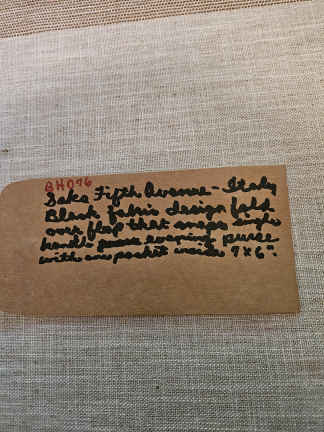 BH076
Saks Fifth Avenue - Italy
Black fabric design fold
over flap that snaps single
handle evening purse
with one pocket inside 7 x 6".